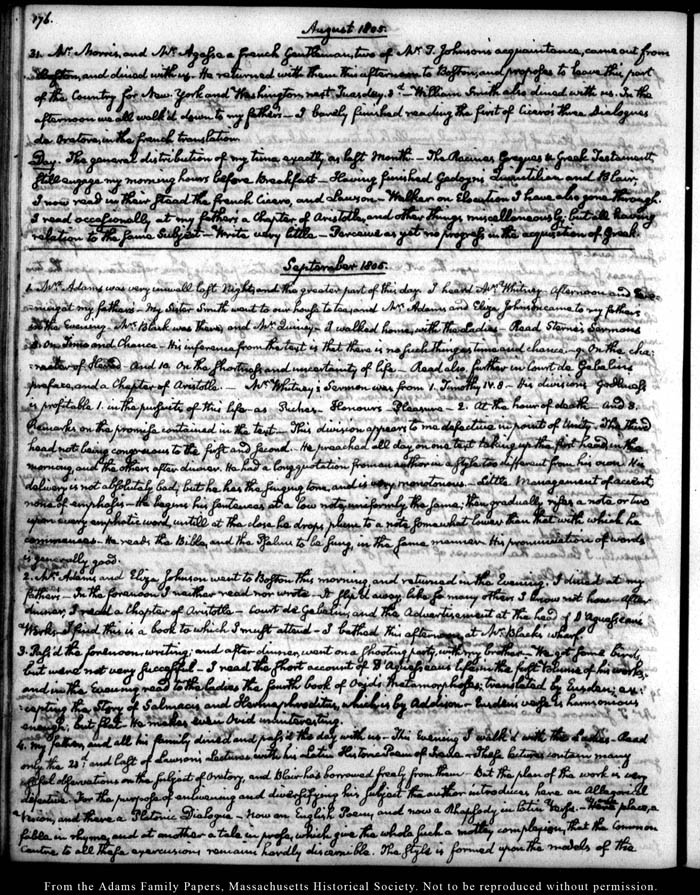 176.
August 1805.
31. Mr. Morris, and Mr. Agasse a french Gentleman, two of Mr. T. Johnson's acquaintance, came out from
Boston, and dined with us. He returned with them this afternoon to Boston, and proposes to leave this part
of the Country for New York and Washington next Tuesday, 3d. — William Smith also dined with us. In the
afternoon we all walk'd down to my father's — I barely finished reading the first of Cicero's three Dialogues
de Oratore, in the french translation.
Day. The general distribution of my time exactly as last Month. — The Racines Grecques & Greek Testament,
still engage my morning hours before Breakfast — Having finished Gedoyn's Quintilian and Blair,
I now read in their stead the french Cicero, and Lawson — Walker on Elocution I have also gone through.
I read occasionally at my father's a Chapter of Aristotle, and other things miscellaneously; but all having
relation to the same Subject — Write very little — Perceive as yet no progress in the acquisition of Greek.
September 1805.
1. Mrs. Adams was very unwell last Night, and the greater part of this day. I heard Mr. Whitney. Afternoon and Eve-
ning at my father's — My Sister Smith went to our house to tea, and Mrs. Adams and Eliza Johnson came to my father's
in the Evening. Mr. Black was there, and Mr. Quincy — I walked home, with the Ladies — Read Sterne's Sermons
8. On Time and Chance — His inference from the text is that there is no such thing as time and chance. — 9. On the cha-
racter of Herod — And 10. On the shortness and uncertainty of life — Read also, further in Court de Gebelin's
preface, and a Chapter of Aristotle. — Mr. Whitney's Sermon was from 1. Timothy IV. 8 — His divisions Godliness
is profitable 1. in the pursuits of this life — as Riches — Honours — Pleasure — 2. At the hour of death — And 3.
Remarks on the promise contained in the text — This division appears to me defective in point of Unity. The third
head not being congenious to the first and second. He preached all day on one text, taking up the first head in the
morning, and the others after dinner. He had a long quotation from an author in a style too different from his own. His
delivery is not absolutely bad; but he has the singing tone, and is very monotonous — Little Management of accent;
none of emphasis — He begins his sentences at a low note, uniformly the same; then gradually rises a note or two
upon every emphatic word, untill at the close he drops plump to a note somewhat lower than that with which he
commences. He reads the Bible, and the Psalm to be sung, in the same manner. His pronunciation of words
is generally good.
2. Mrs. Adams and Eliza Johnson went to Boston this morning, and returned in the Evening. I dined at my
father's — In the forenoon I neither read nor wrote — It slip'd away, like so many others I know not how. After
dinner, I read a Chapter of Aristotle — Court de Gebelin, and the Advertisement at the head of D'Aguesseau's
Works — I find this is a book to which I must attend — I bathed this afternoon, at Mr. Black's wharf.
3. Pass'd the forenoon, writing; and after dinner, went on a shooting party, with my brother — We got some birds,
but were not very successful — I read the short account of D'Aguesseau's life in the first volume of his works;
and in the Evening read to the ladies the fourth book of Ovid's Metamorphoses; translated by Eusden; ex-
cepting the Story of Salmacis and Hermaphroditus, which is by Addison — Eusden's verse is harmonious
enough; but flat — He makes even Ovid uninteresting.
4. My father, and all his family dined and pass'd the day with us — This Evening I walk'd with the Ladies. Read
only the 23d. and last of Lawson's Lectures, with his Latin Historic Poem of Irene — These lectures contain many
useful observations on the subject of Oratory, and Blair has borrowed freely from them — But the plan of the work is very
defective. For the purpose of enlivening and diversifying his subject the author introduces here an Allegorical
Vision, and there a Platonic Dialogue — Now an English Poem, and now a Rhapsody in latin verse — place, a
fable in rhyme, and at another a tale in prose, which give the whole such a motley complexion, that the common
Centre to all these excursions remains hardly discernible. The style is formed upon the models of the
From the Adams Family Papers, Massachusetts Historical Society. Not to be reproduced without permission.